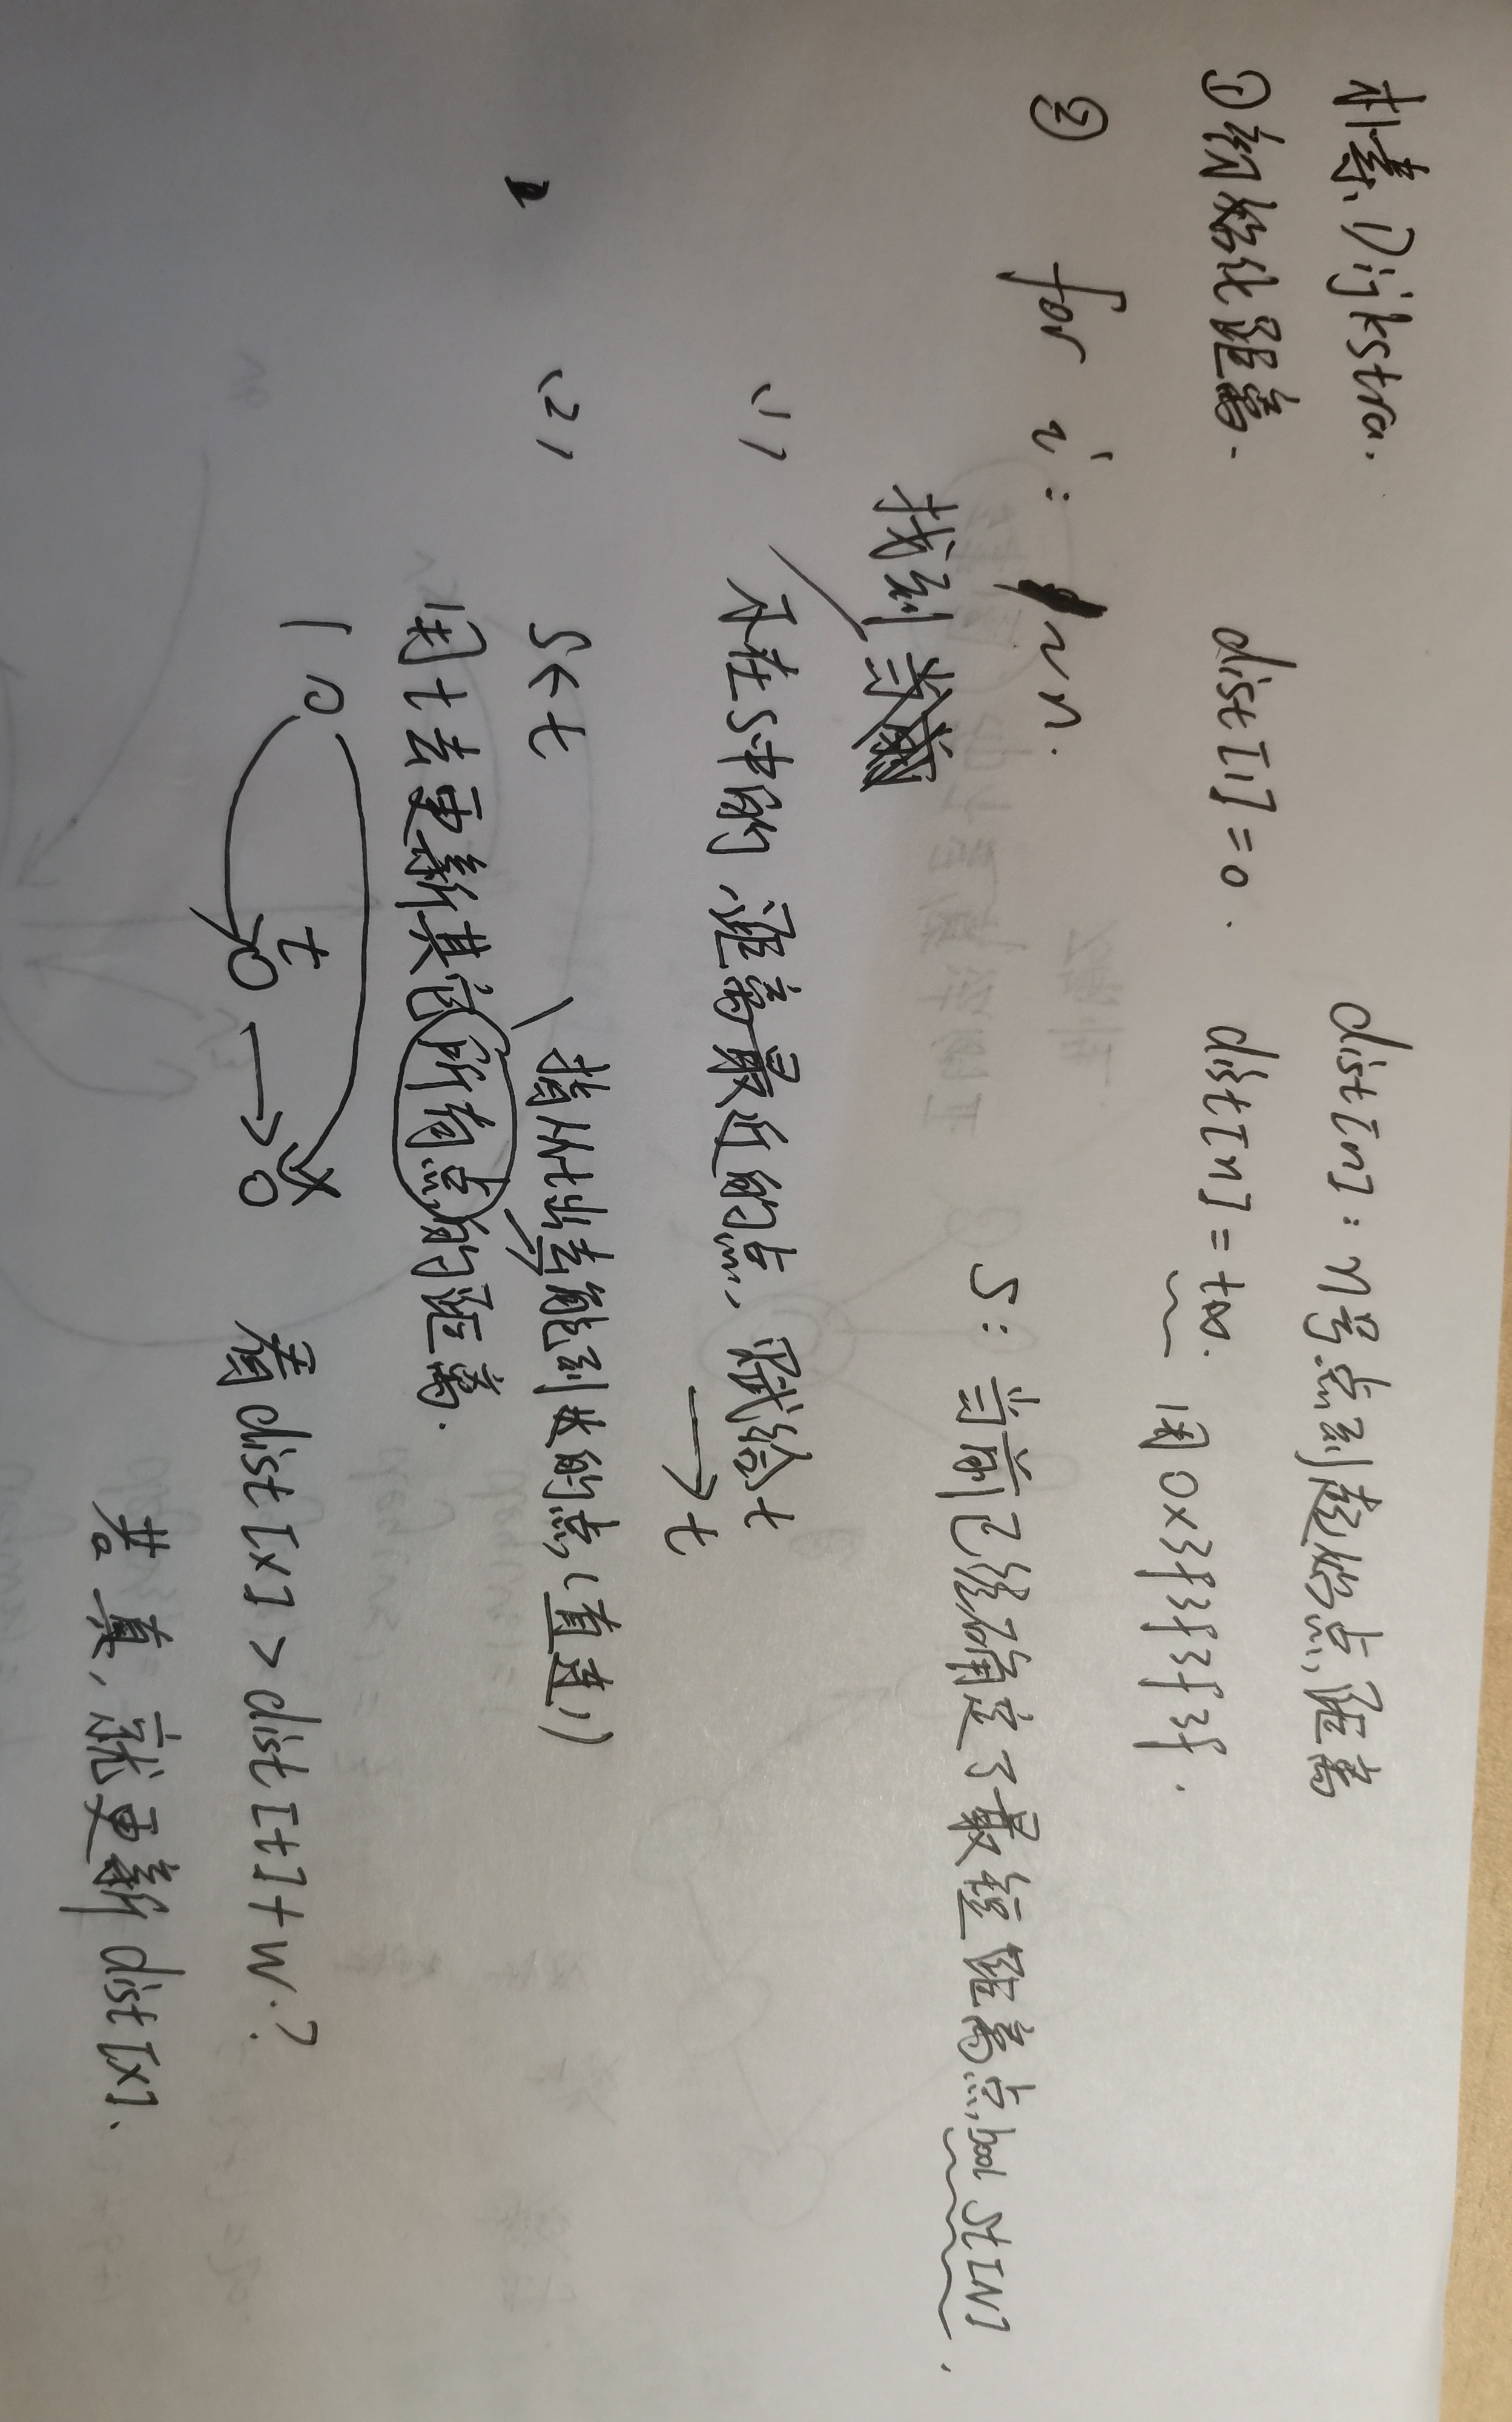 朴素Dijkstra.
dist[n]:n号点到起始点距离
①初始化距离. dist[1]=0. dist[n]=+∞. 用0x3f3f3f3f.
② for i: 1~n. S:当前已经确定了最短距离点, bool st[N].
找到
(1) 不在S中的、距离最近的点, 赋给t
→t
(2) S←t
指从t出去能到达的点,(直连!)
用t去更新其它所有点的距离.
1 t x
看dist[x]>dist[t]+w.?
若真,就更新dist[x].